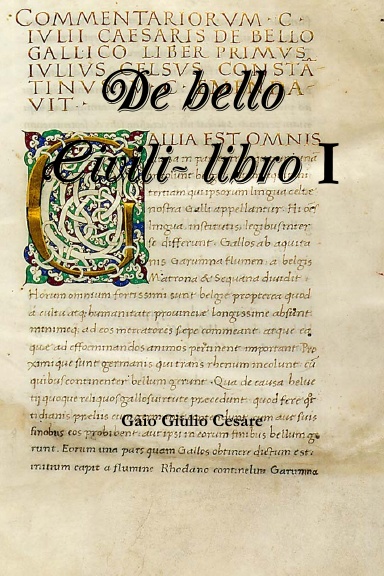 COMMENTARIORVM · C ·
IVLII CAESARIS DE BELLO
GALLICO LIBER PRIMVS
IVLIVS CELSVS CONSTĀ
TINV
VIT ·
De bello
Civili- libro I
ALLIA EST OMNIS
tertiam qui ipsorum lingua celtæ
nostra Galli appellantur. Hi oēs
lingua institutis, legibus inter
se differunt. Gallos ab aquita
nis Garumna flumen, a belgis
Matrona & Sequana diuidit.
Horum omnium fortissimi sunt belgæ propterea quod
a cultu atque humanitate prouinciæ longissime absunt
minimeque ad eos mercatores sæpe commeant atque ea
quæ ad effœminandos animos pertinent important. Pro
ximique sunt germanis qui trans rhenum incolunt cū
quibus continenter bellum gerunt. Qua de causa heluet
tii quoque reliquos gallos uirtute præcedunt quod fere q̄t
tidianis præliis cum
Gaio Giulio Cesare
finobus eos prohibent aut ipsi in eorum finibus bellum ge
runt. Eorum una pars quam Gallos obtinere dictum est
initium capit a flumine Rhodano continetur Garumna